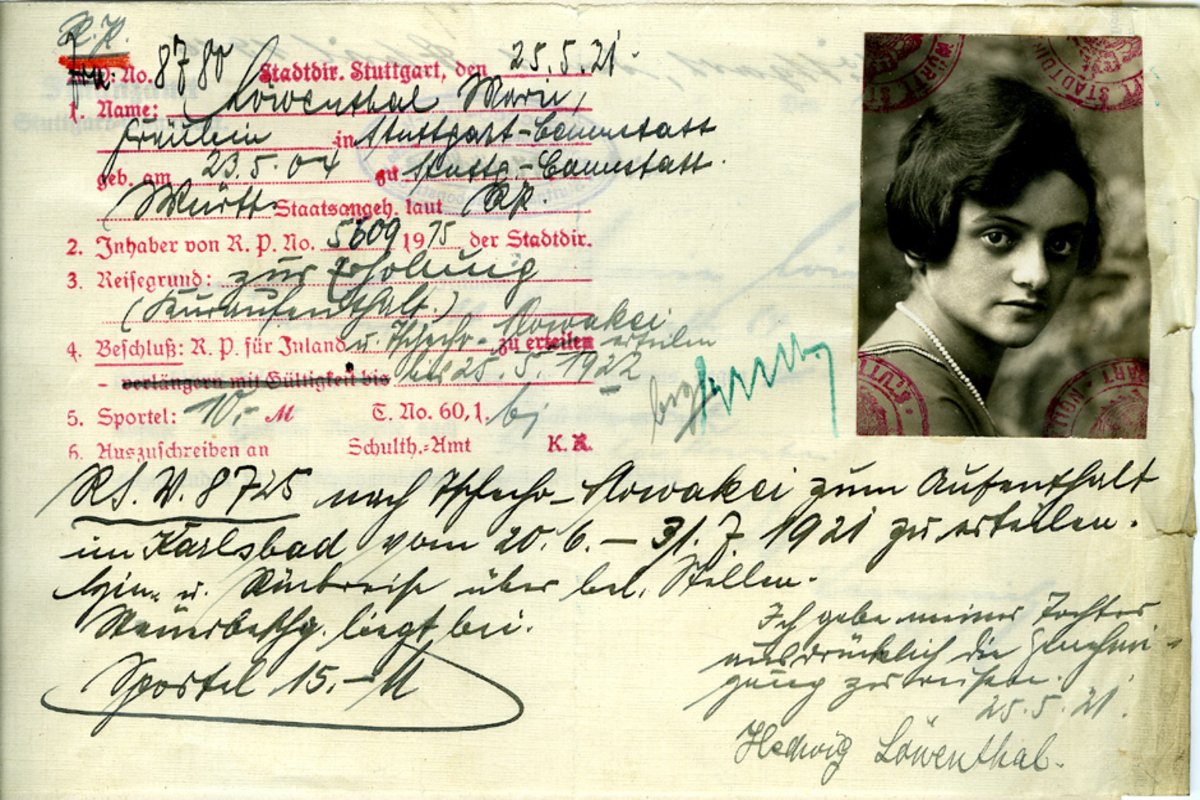 R.P.
No. 8780 Stadtdir. Stuttgart, den 25.5.21.
1. Name: Löwenthal Marie,
Fräulein in Stuttgart-Cannstatt
geb. am 23.5.04 zu Stuttg.-Cannstatt.
Württ. Staatsangeh. laut Rp.
2. Inhaber von R. P. No. 5609 1915 der Stadtdir.
3. Reisegrund: zur Erholung
(Kuraufenthalt.)
4. Beschluß: R. P. für Inland u. Tschecho-Slowakei zu erteilen erteilen
- verlängern mit Gültigkeit bis bis 25.5.1922
5. Sportel: 10.- M T. No. 60,1.
6. Auszuschreiben an Schulth.-Amt K. A.
R.S.V. 8725 nach Tschecho-Slowakei zum Aufenthalt
in Karlsbad vom 20.6. – 31.7.1921 zu erteilen.
Hin- u. Rückreise über bel. Stellen.
Steuerbesthg. liegt bei.
Sportel 15.- M
Ich gebe meiner Tochter
ausdrücklich die Genehmi-
gung zu reisen.
25.5.21.
Hedwig Löwenthal.